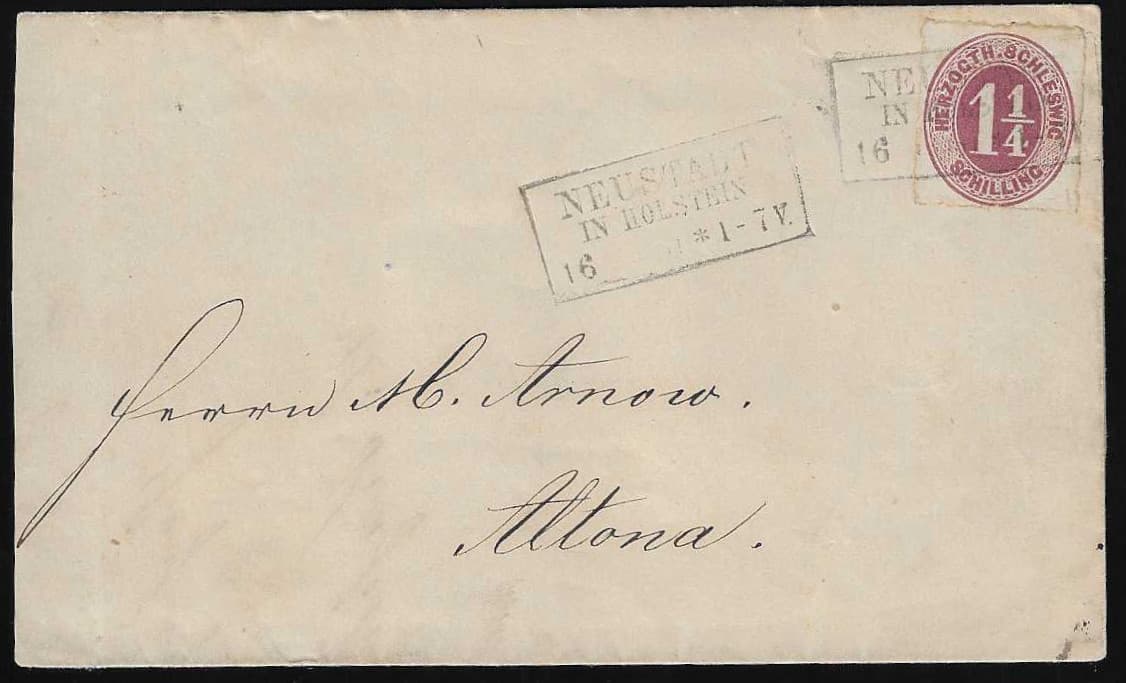 NEUSTADT
IN HOLSTEIN
16 * 1-7 V.
NE
IN
16
HERZOGTH. SCHLESWIG
1 1/4
SCHILLING
Herrn M. Arnow.
Altona.